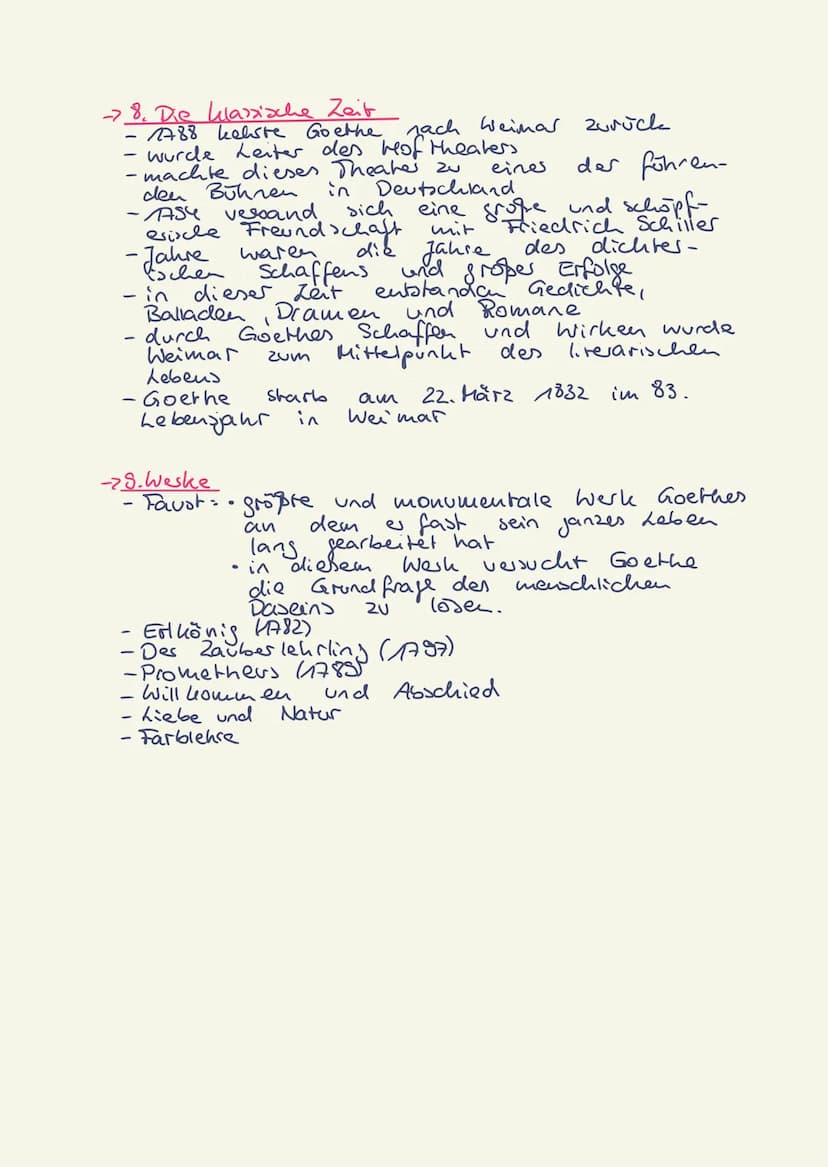 → 8. Die klassische Zeit
- 1788 kehrte Goethe nach Weimar zurück
- wurde Leiter des Hoftheaters
- machte dieses Theater zu eines der führen-
den Bühnen in Deutschland
- 1794 verband sich eine große und schöpf-
erische Freundschaft mit Friedrich Schiller
- Jahre waren die Jahre des dichter-
ischen Schaffens und großer Erfolge
- in dieser Zeit entstanden Gedichte,
Balladen, Dramen und Romane
- durch Goethes Schaffen und Wirken wurde
Weimar zum Mittelpunkt des literarischen
Lebens
- Goethe starb am 22. März 1832 im 83.
Lebensjahr in Weimar
→ 9. Werke
- Faust: • größte und monumentale Werk Goethes
an dem er fast sein ganzes Leben
lang gearbeitet hat
• in diesem Werk versucht Goethe
die Grundfrage des menschlichen
Daseins zu lösen.
- Erlkönig (1782)
- Der Zauberlehrling (1797)
- Prometheus (1789)
- Willkommen und Abschied
- Liebe und Natur
- Farblehre